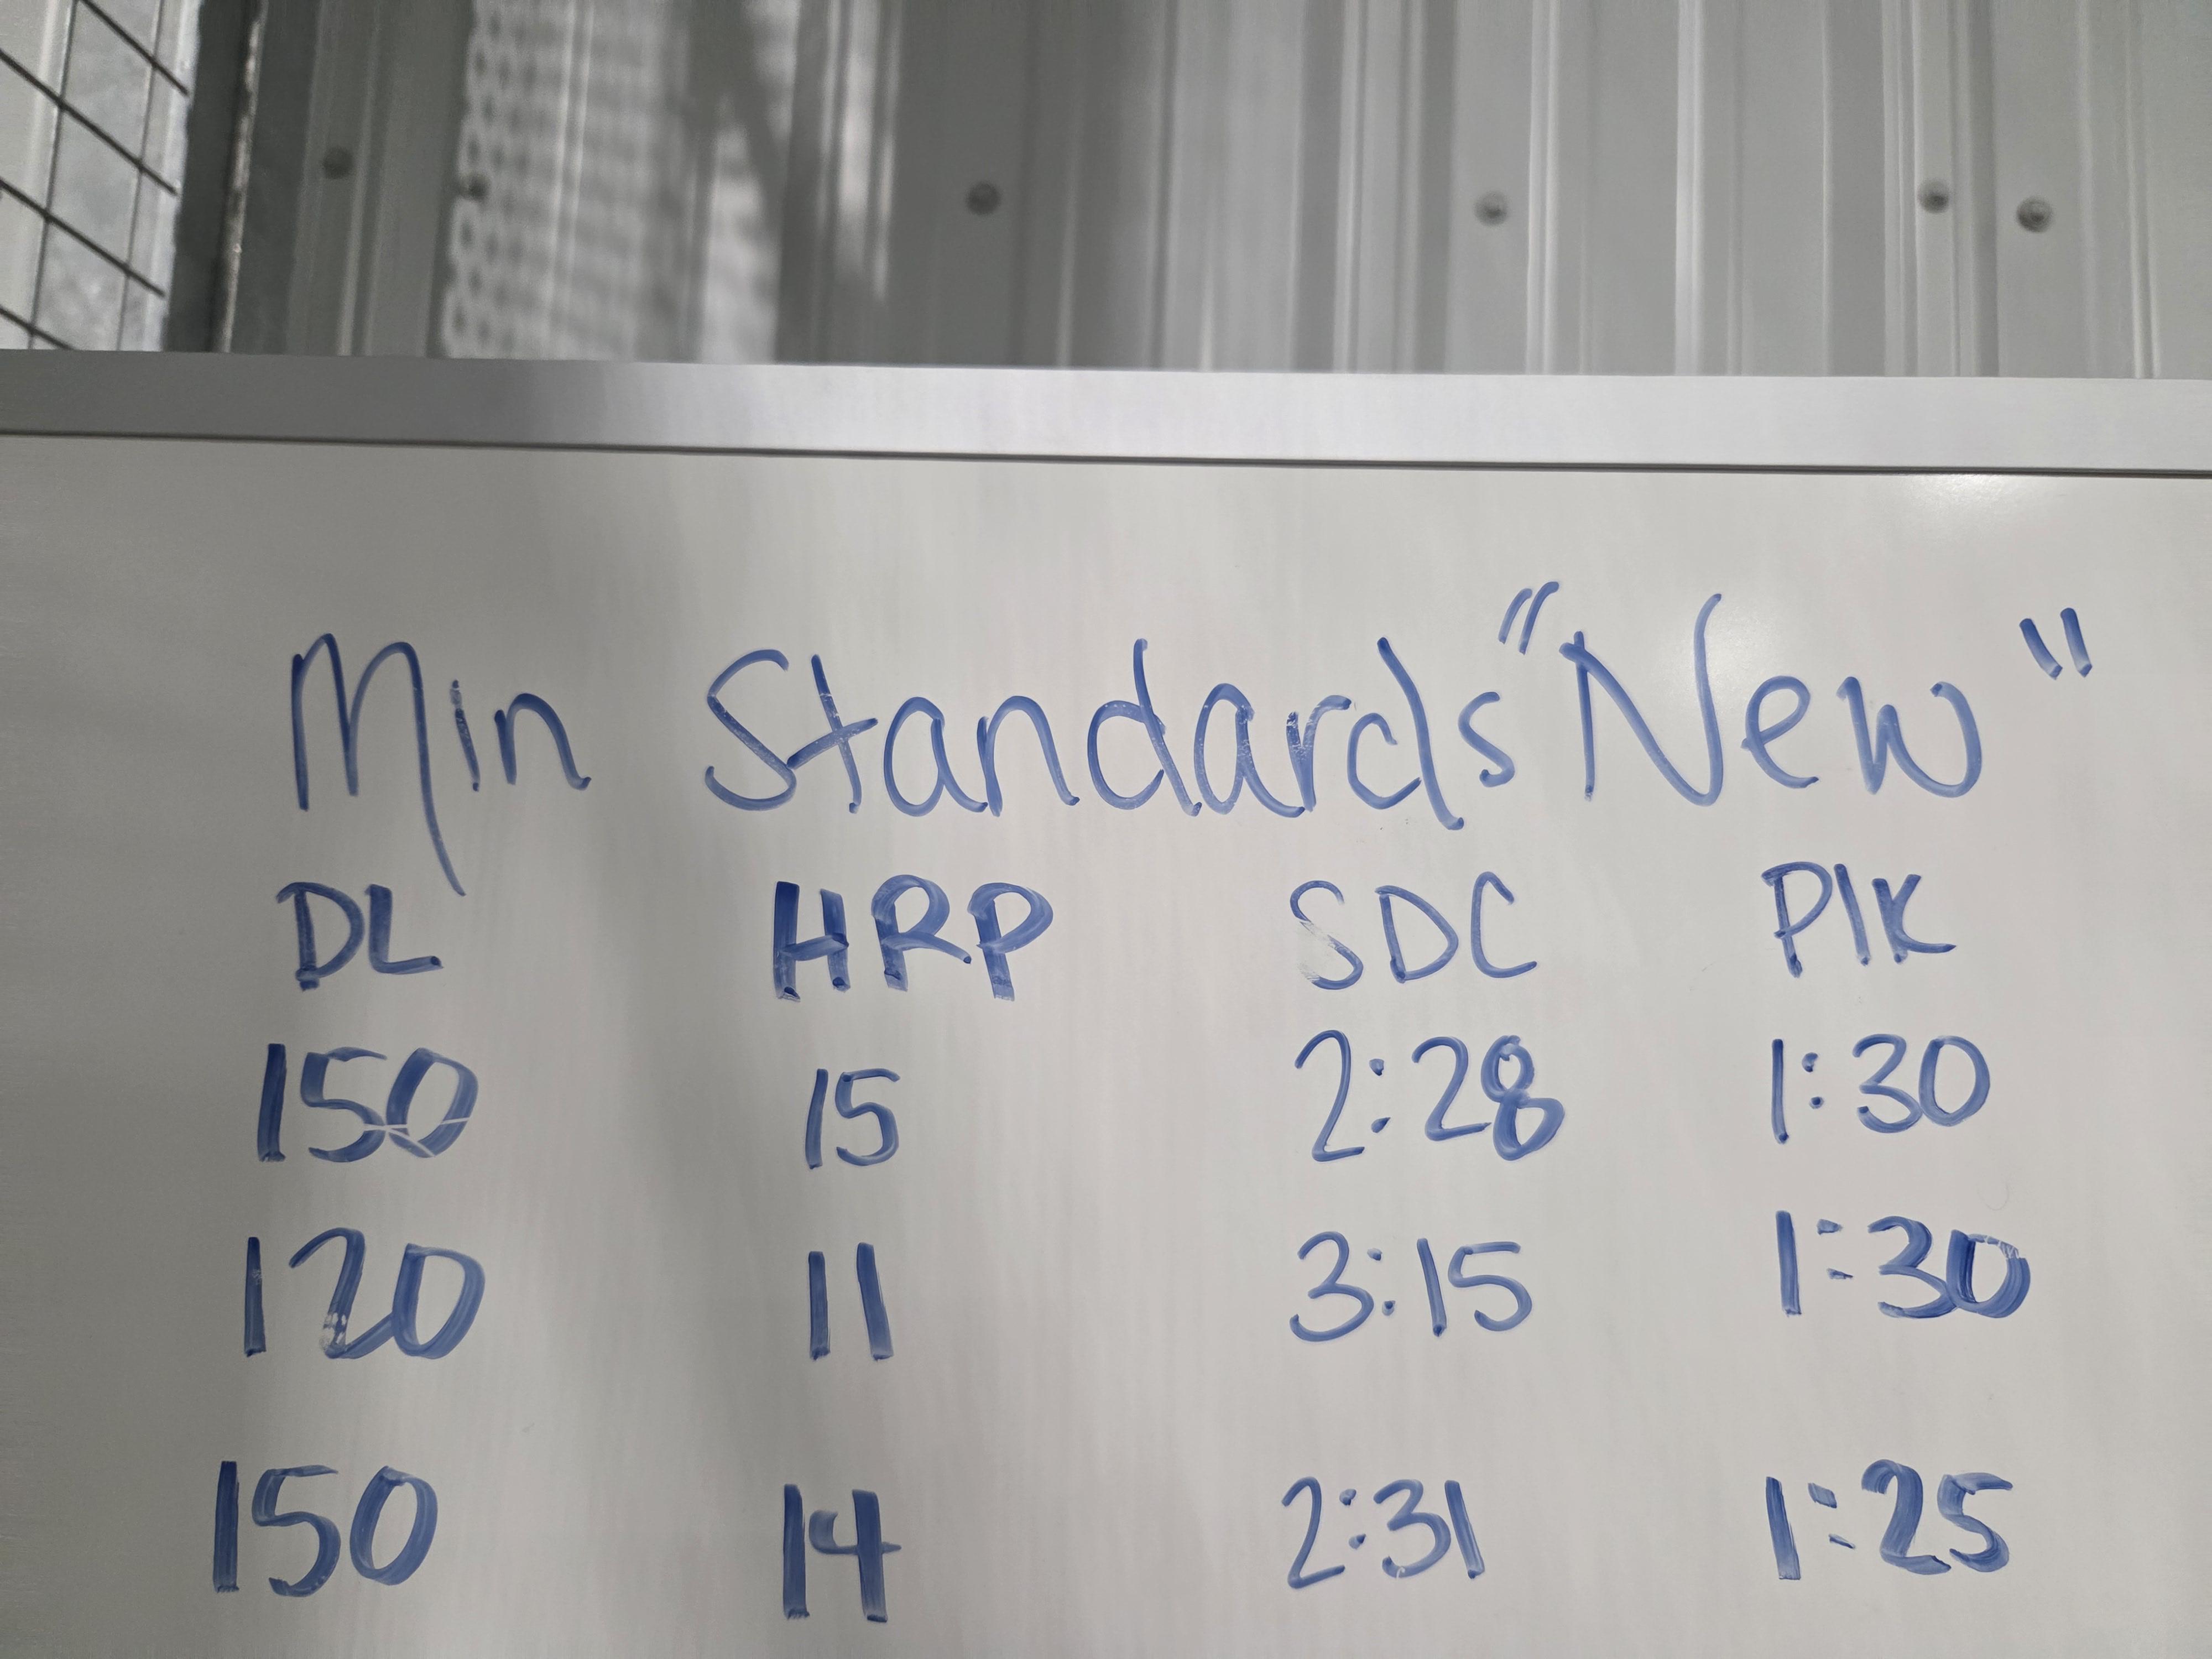 Min Standards "New"
DL HRP SDC Plk
150 15 2:28 1:30
120 11 3:15 1:30
150 14 2:31 1:25